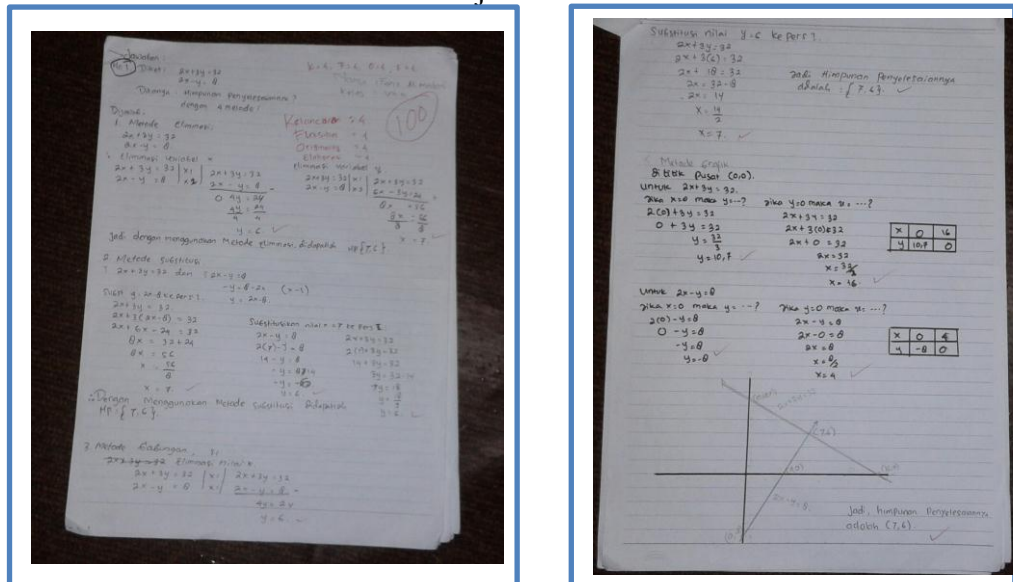 Jawaban
No 1 Diket: 2x+3y=32
2x-y=8
Ditanya Himpunan Penyelesaiannya?
dengan 4 metode!
K=4, F=4, O=4, E=4
Kelas
100
Kelancaran = 4
Dijawab:
1. Metode Eliminasi
2x+3y=32
2x-y=8
Eliminasi variabel x
2x+3y=32 |x1| 2x+3y=32
2x-y=8 2x-y=8 -
0 4y=24
4y/4 = 24/4
y=6 ✓
Eliminasi variabel y
2x+3y=32 |x1| 2x+3y=32
2x-y=8 |x3| 6x-3y=24
8x=56
x=7 ✓
Jadi dengan menggunakan Metode eliminasi, didapatlah HP{7,6}.
2. Metode Substitusi
2x+3y=32 dan 2x-y=8
-y=8-2x
y=2x-8
2x+3y=32
2x+3(2x-8)=32
2x+6x-24=32
8x=32+24
8x=56
x=56/8
x=7 ✓
Substitusikan nilai x=7 ke pers
2x-y=8
2(7)-y=8
14-y=8
y=6 ✓
2x+3y=32
2(7)+3y=32
14+3y=32
3y=32-14
3y=18
y=18/3
y=6 ✓
∴ Dengan menggunakan Metode Substitusi didapatlah
HP={7,6}.
3. Metode Gabungan
Eliminasi nilai x
2x+3y=32 |x1| 2x+3y=32
2x-y=8 |x1| 2x-y=8 -
4y=24
y=6
Substitusi nilai y=6 ke pers 1.
2x+3y=32
2x+3(6)=32
2x+18=32
2x=32-18
2x=14
x=14/2
x=7. ✓
Jadi Himpunan Penyelesaiannya
adalah : {7,6}. ✓
Metode Grafik
titik pusat (0,0).
Untuk 2x+3y=32.
Jika x=0 maka y=...?
2(0)+3y=32
0+3y=32
y=32/3
y=10,7 ✓
Jika y=0 maka x=...?
2x+3y=32
2x+3(0)=32
2x+0=32
2x=32
x=32/2
x=16. ✓
x 0 16
y 10,7 0
Untuk 2x-y=8
Jika x=0 maka y=...?
2(0)-y=8
0-y=8
-y=8
y=-8 ✓
Jika y=0 maka x=...?
2x-y=8
2x-0=8
2x=8
x=8/2
x=4 ✓
x 0 4
y -8 0
2x+3y=32
(7,6)
2x-y=8
Jadi, himpunan Penyelesaiannya
adalah (7,6). ✓